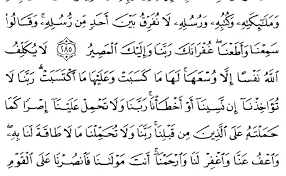 وَمَلَٰٓئِكَتِهِۦ وَكُتُبِهِۦ وَرُسُلِهِۦ لَا نُفَرِّقُ بَيْنَ أَحَدٍ مِّن رُّسُلِهِۦ ۚ وَقَالُوا۟
سَمِعْنَا وَأَطَعْنَا ۖ غُفْرَانَكَ رَبَّنَا وَإِلَيْكَ ٱلْمَصِيرُ ۝٢٨٥ لَا يُكَلِّفُ
ٱللَّهُ نَفْسًا إِلَّا وُسْعَهَا ۚ لَهَا مَا كَسَبَتْ وَعَلَيْهَا مَا ٱكْتَسَبَتْ ۗ رَبَّنَا لَا
تُؤَاخِذْنَآ إِن نَّسِينَآ أَوْ أَخْطَأْنَا ۚ رَبَّنَا وَلَا تَحْمِلْ عَلَيْنَآ إِصْرًا كَمَا
حَمَلْتَهُۥ عَلَى ٱلَّذِينَ مِن قَبْلِنَا ۚ رَبَّنَا وَلَا تُحَمِّلْنَا مَا لَا طَاقَةَ لَنَا بِهِۦ ۖ
وَٱعْفُ عَنَّا وَٱغْفِرْ لَنَا وَٱرْحَمْنَآ ۚ أَنتَ مَوْلَىٰنَا فَٱنصُرْنَا عَلَى ٱلْقَوْمِ